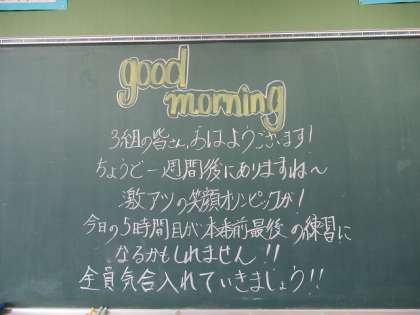 good
morning
3組の皆さん、おはようございます!
ちょうど一週間後にありますね〜
激アツの笑顔オリンピックが!
今日の5時間目が、本番前最後の練習に
なるかもしれません!!
全員気合入れていきましょう!!